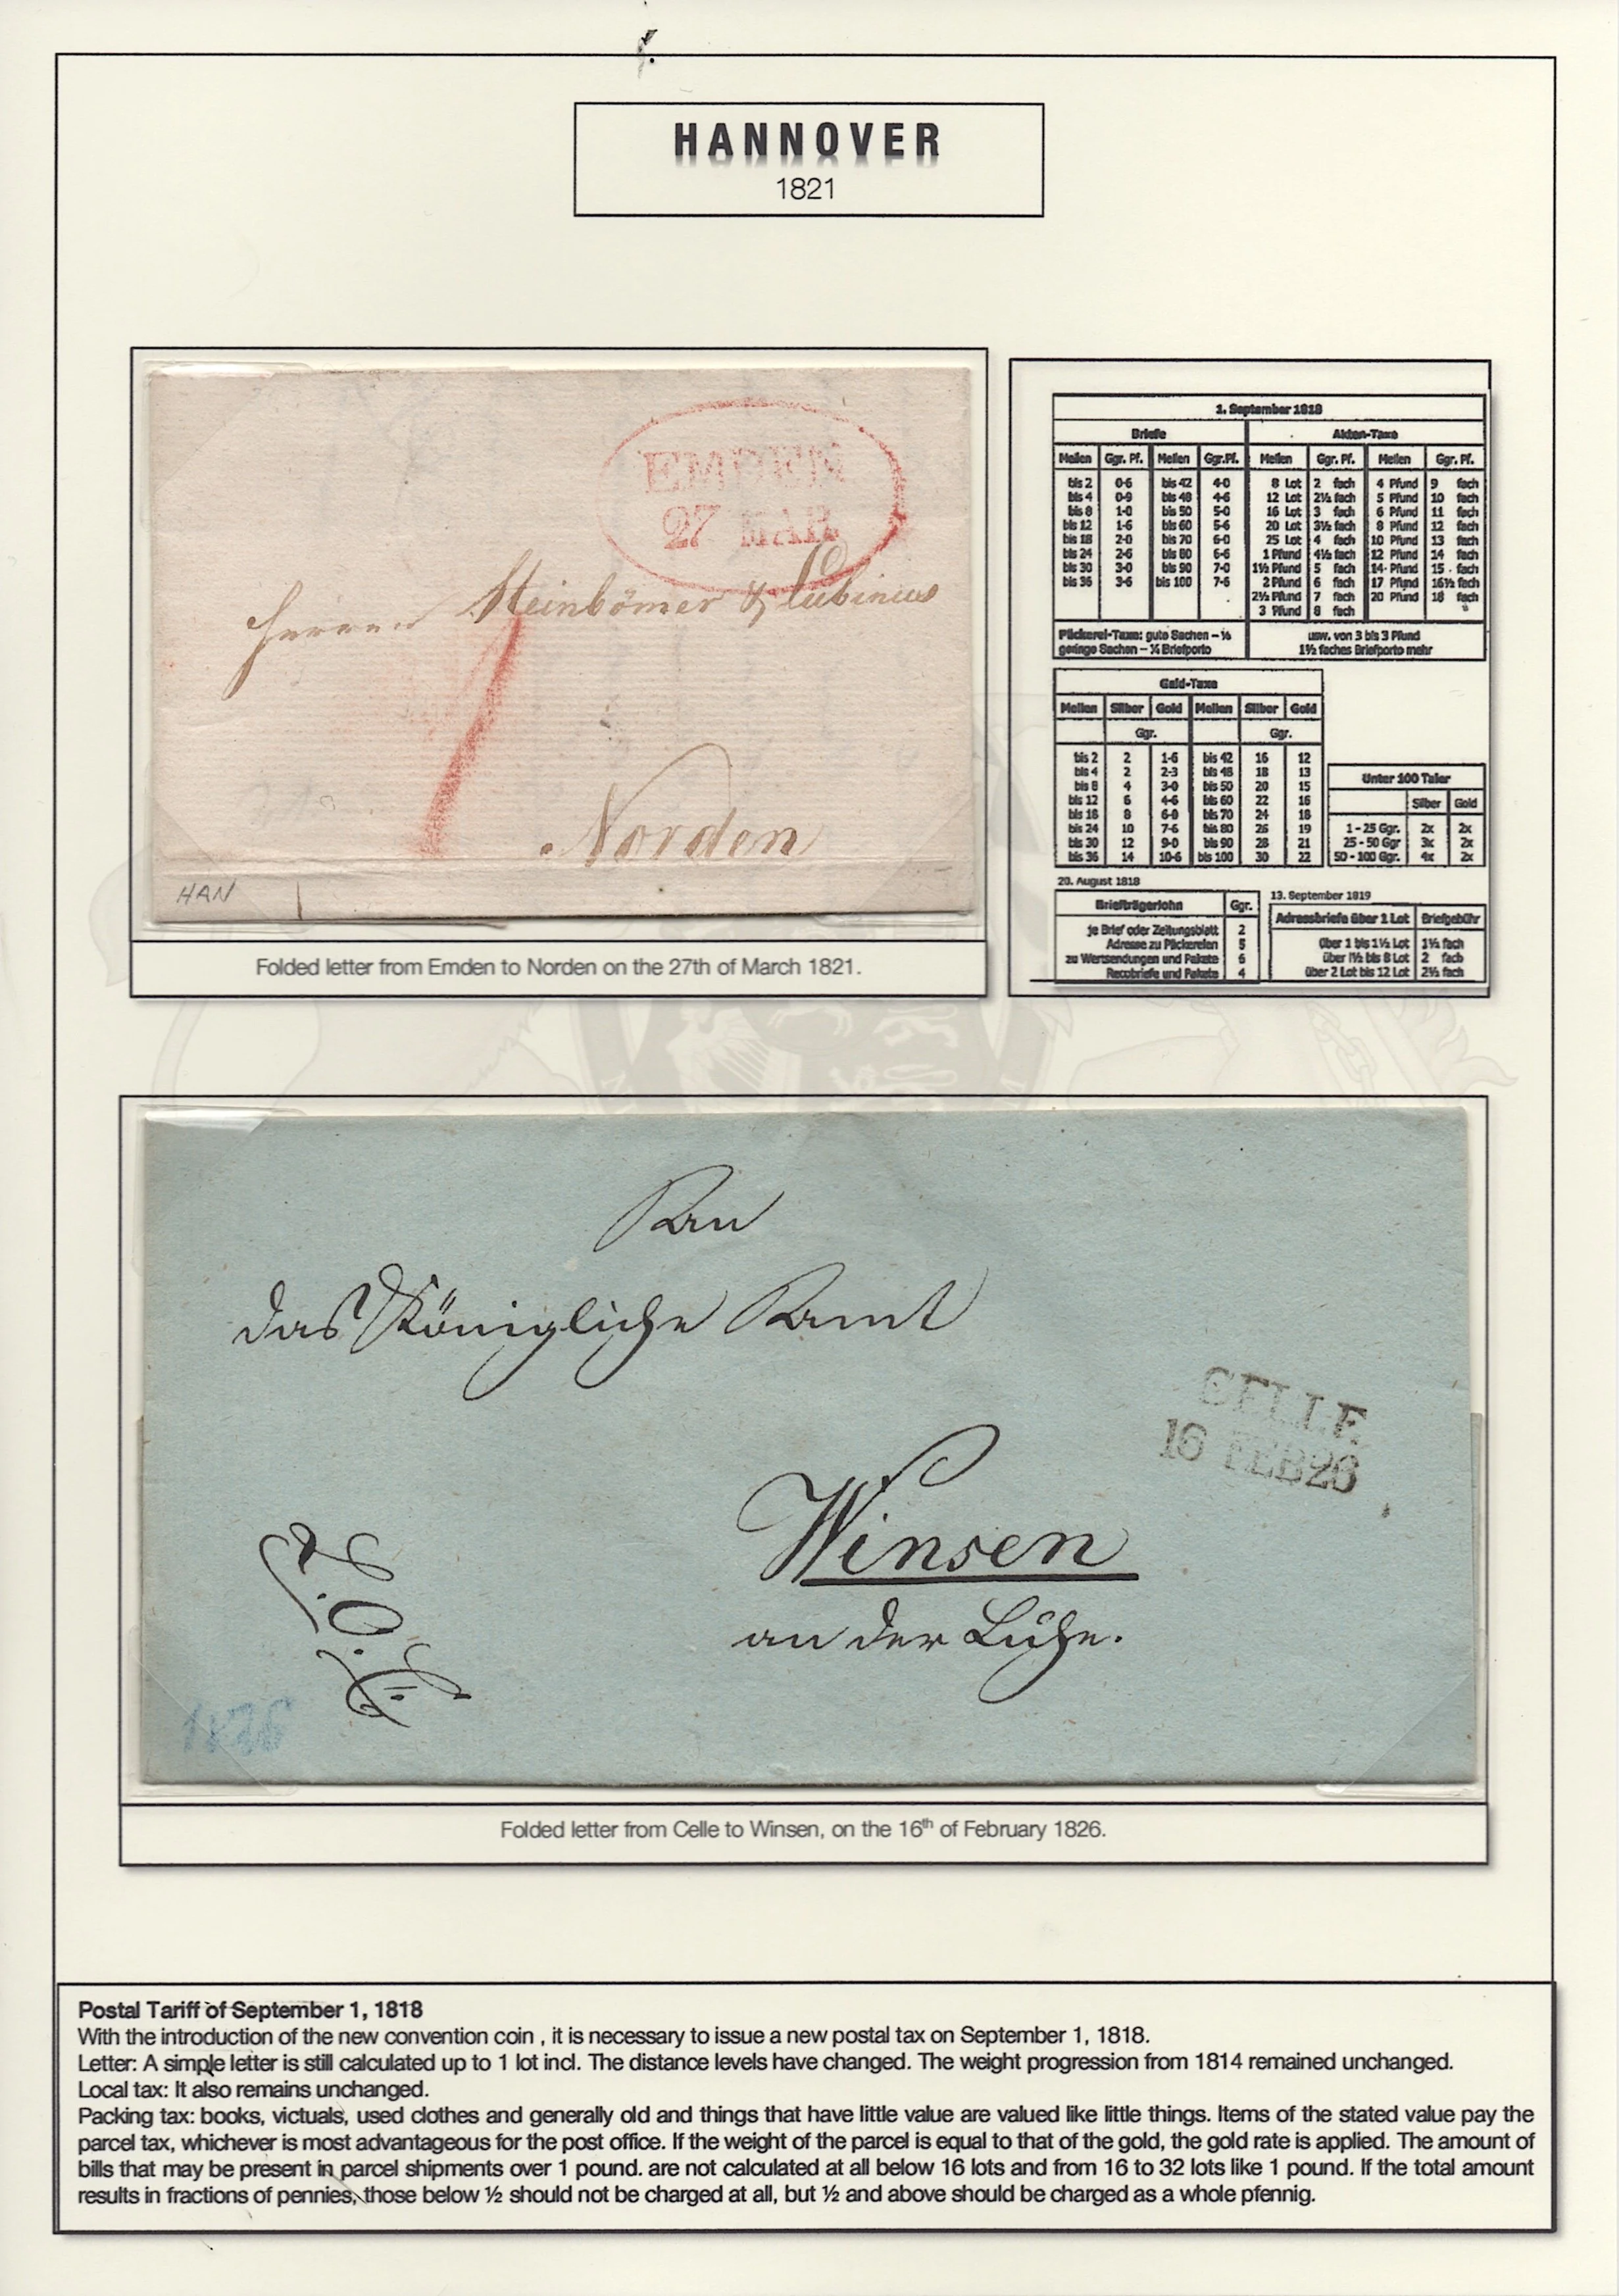 HANNOVER
1821
EMDEN
27 MAR
Herren Steinbömer & Lubinus
Norden
HAN
Folded letter from Emden to Norden on the 27th of March 1821.
1. September 1818
Briefe Akten-Taxe
Meilen Ggr. Pf. Meilen Ggr.Pf. Meilen Ggr. Pf. Meilen Ggr. Pf.
bis 2 0-6 bis 42 4-0 8 Lot 2 fach 4 Pfund 9 fach
bis 4 0-9 bis 48 4-6 12 Lot 2½ fach 5 Pfund 10 fach
bis 8 1-0 bis 50 5-0 16 Lot 3 fach 6 Pfund 11 fach
bis 12 1-6 bis 60 5-6 20 Lot 3½ fach 8 Pfund 12 fach
bis 18 2-0 bis 70 6-0 25 Lot 4 fach 10 Pfund 13 fach
bis 24 2-6 bis 80 6-6 1 Pfund 4½ fach 12 Pfund 14 fach
bis 30 3-0 bis 90 7-0 1½ Pfund 5 fach 14 Pfund 15 fach
bis 36 3-6 bis 100 7-6 2 Pfund 6 fach 17 Pfund 16½ fach
2½ Pfund 7 fach 20 Pfund 18 fach
3 Pfund 8 fach
Päckerei-Taxe: gute Sachen – usw. von 3 bis 3 Pfund
geringe Sachen – ¼ Briefporto 1½ faches Briefporto mehr
Geld-Taxe
Meilen Silber Gold Meilen Silber Gold
Ggr. Ggr.
bis 2 2 1-6 bis 42 16 12
bis 4 2 2-3 bis 48 18 13
bis 8 4 3-0 bis 50 20 15
bis 12 6 4-6 bis 60 22 16
bis 18 8 6-0 bis 70 24 18
bis 24 10 7-6 bis 80 26 19
bis 30 12 9-0 bis 90 28 21
bis 36 14 10-6 bis 100 30 22
Unter 100 Taler
Silber Gold
1 - 25 Ggr. 2x 2x
25 - 50 Ggr 3x 2x
50 - 100 Ggr. 4x 2x
20. August 1818
Briefträgerlohn Ggr.
je Brief oder Zeitungsblatt 2
Adresse zu Päckereien 5
zu Wertsendungen und Pakete 6
Recobriefe und Pakete 4
13. September 1819
Adressbriefe über 1 Lot Briefgebühr
über 1 bis 1½ Lot 1½ fach
über 1½ bis 8 Lot 2 fach
über 2 Lot bis 12 Lot 2½ fach
An
das Königliche Amt
CELLE
16 FEB 26
Winsen
an der Luhe.
1826
Folded letter from Celle to Winsen, on the 16th of February 1826.
Postal Tariff of September 1, 1818
With the introduction of the new convention coin , it is necessary to issue a new postal tax on September 1, 1818.
Letter: A simple letter is still calculated up to 1 lot incl. The distance levels have changed. The weight progression from 1814 remained unchanged.
Local tax: It also remains unchanged.
Packing tax: books, victuals, used clothes and generally old and things that have little value are valued like little things. Items of the stated value pay the
parcel tax, whichever is most advantageous for the post office. If the weight of the parcel is equal to that of the gold, the gold rate is applied. The amount of
bills that may be present in parcel shipments over 1 pound. are not calculated at all below 16 lots and from 16 to 32 lots like 1 pound. If the total amount
results in fractions of pennies, those below ½ should not be charged at all, but ½ and above should be charged as a whole pfennig.